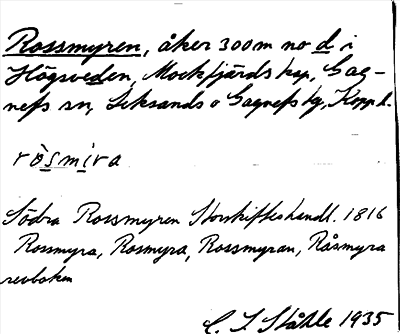 Rossmyren, åker 300 m no d i
Högsveden, Mockfjärds ksp, Gag-
nefs sn, Leksands o Gagnefs tg, Kopp. l.
ròsmira
Södra Rossmyren Storskifteshandl. 1816
Rossmyra, Rosmyra, Rossmyran, Råsmyra
revboken
C. I. Ståhle 1935